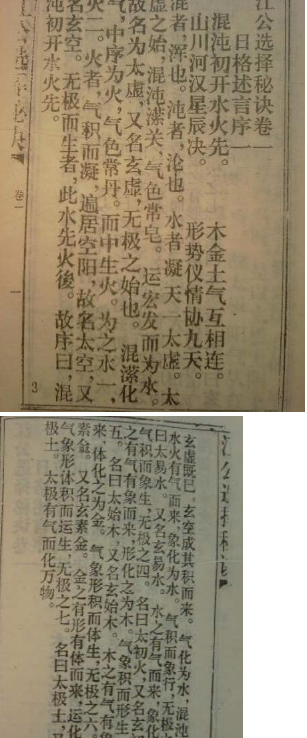 江公选择秘诀卷一
日格述言序一
混沌初开水火先。　木金土气互相连。
山川河汉星辰决。　形势仪情协九天。
混者，浑也。沌者，沦也。水者凝天一太虚。太
虚之始，混沌溁关，气色常皂。运宏发而为水。
故名为太虚，又名玄虚，无极之始也。混溁化
气，中序为火，气色常丹。而中生火。为之水一，
火二。火者，气积而凝，遍居空阳，故名太空，又
名玄空。无极而生者，此水先火後。故序曰，混
沌初开水火先。
卷一
一
3
江公选择秘
玄虚既巳。玄空成其积而来。气化为水，混沌
水火有气而来，象化为水。气积而象行，无极
曰太易水。又名玄易水。水之有气而来，象化
气积而象生，无极之四。名曰太初火，又名玄
之有气有象而来，形化之为木。气象积而形生
五。名曰太始木，又名玄始木。木之有气有象
来，体化之为金。气象形积而体生，无极之六。
素金。又名玄素金。金之有形有体而来，运化
气象形体积而运生，无极之七。名曰太极土，又
极土。太极有气而化万物。